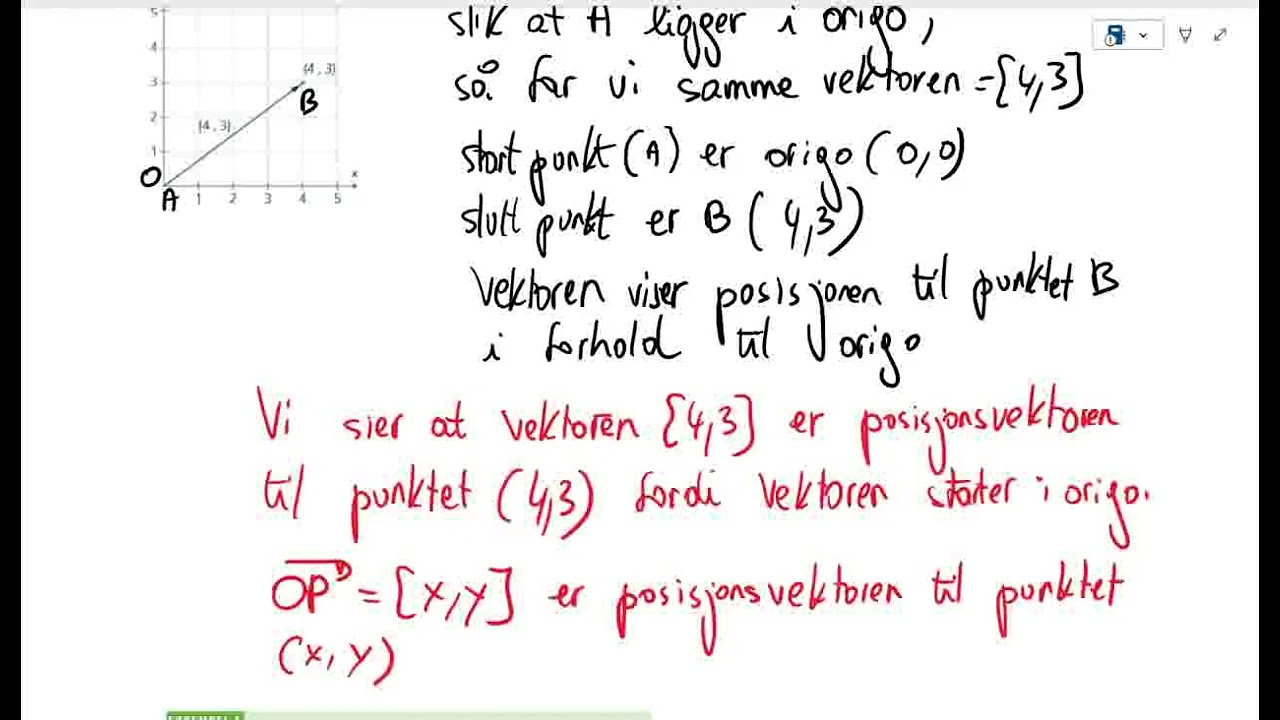 slik at A ligger i origo,
så får vi samme vektoren = [4,3]
start punkt (A) er origo (0,0)
slutt punkt er B (4,3)
Vektoren viser posisjonen til punktet B
i forhold til origo
5
4
3
2
1
O
A
1 2 3 4 5
x
(4, 3)
B
[4, 3]
Vi sier at vektoren [4,3] er posisjonsvektoren
til punktet (4,3) fordi vektoren starter i origo.
OP = [x,y] er posisjonsvektoren til punktet
(x,y)